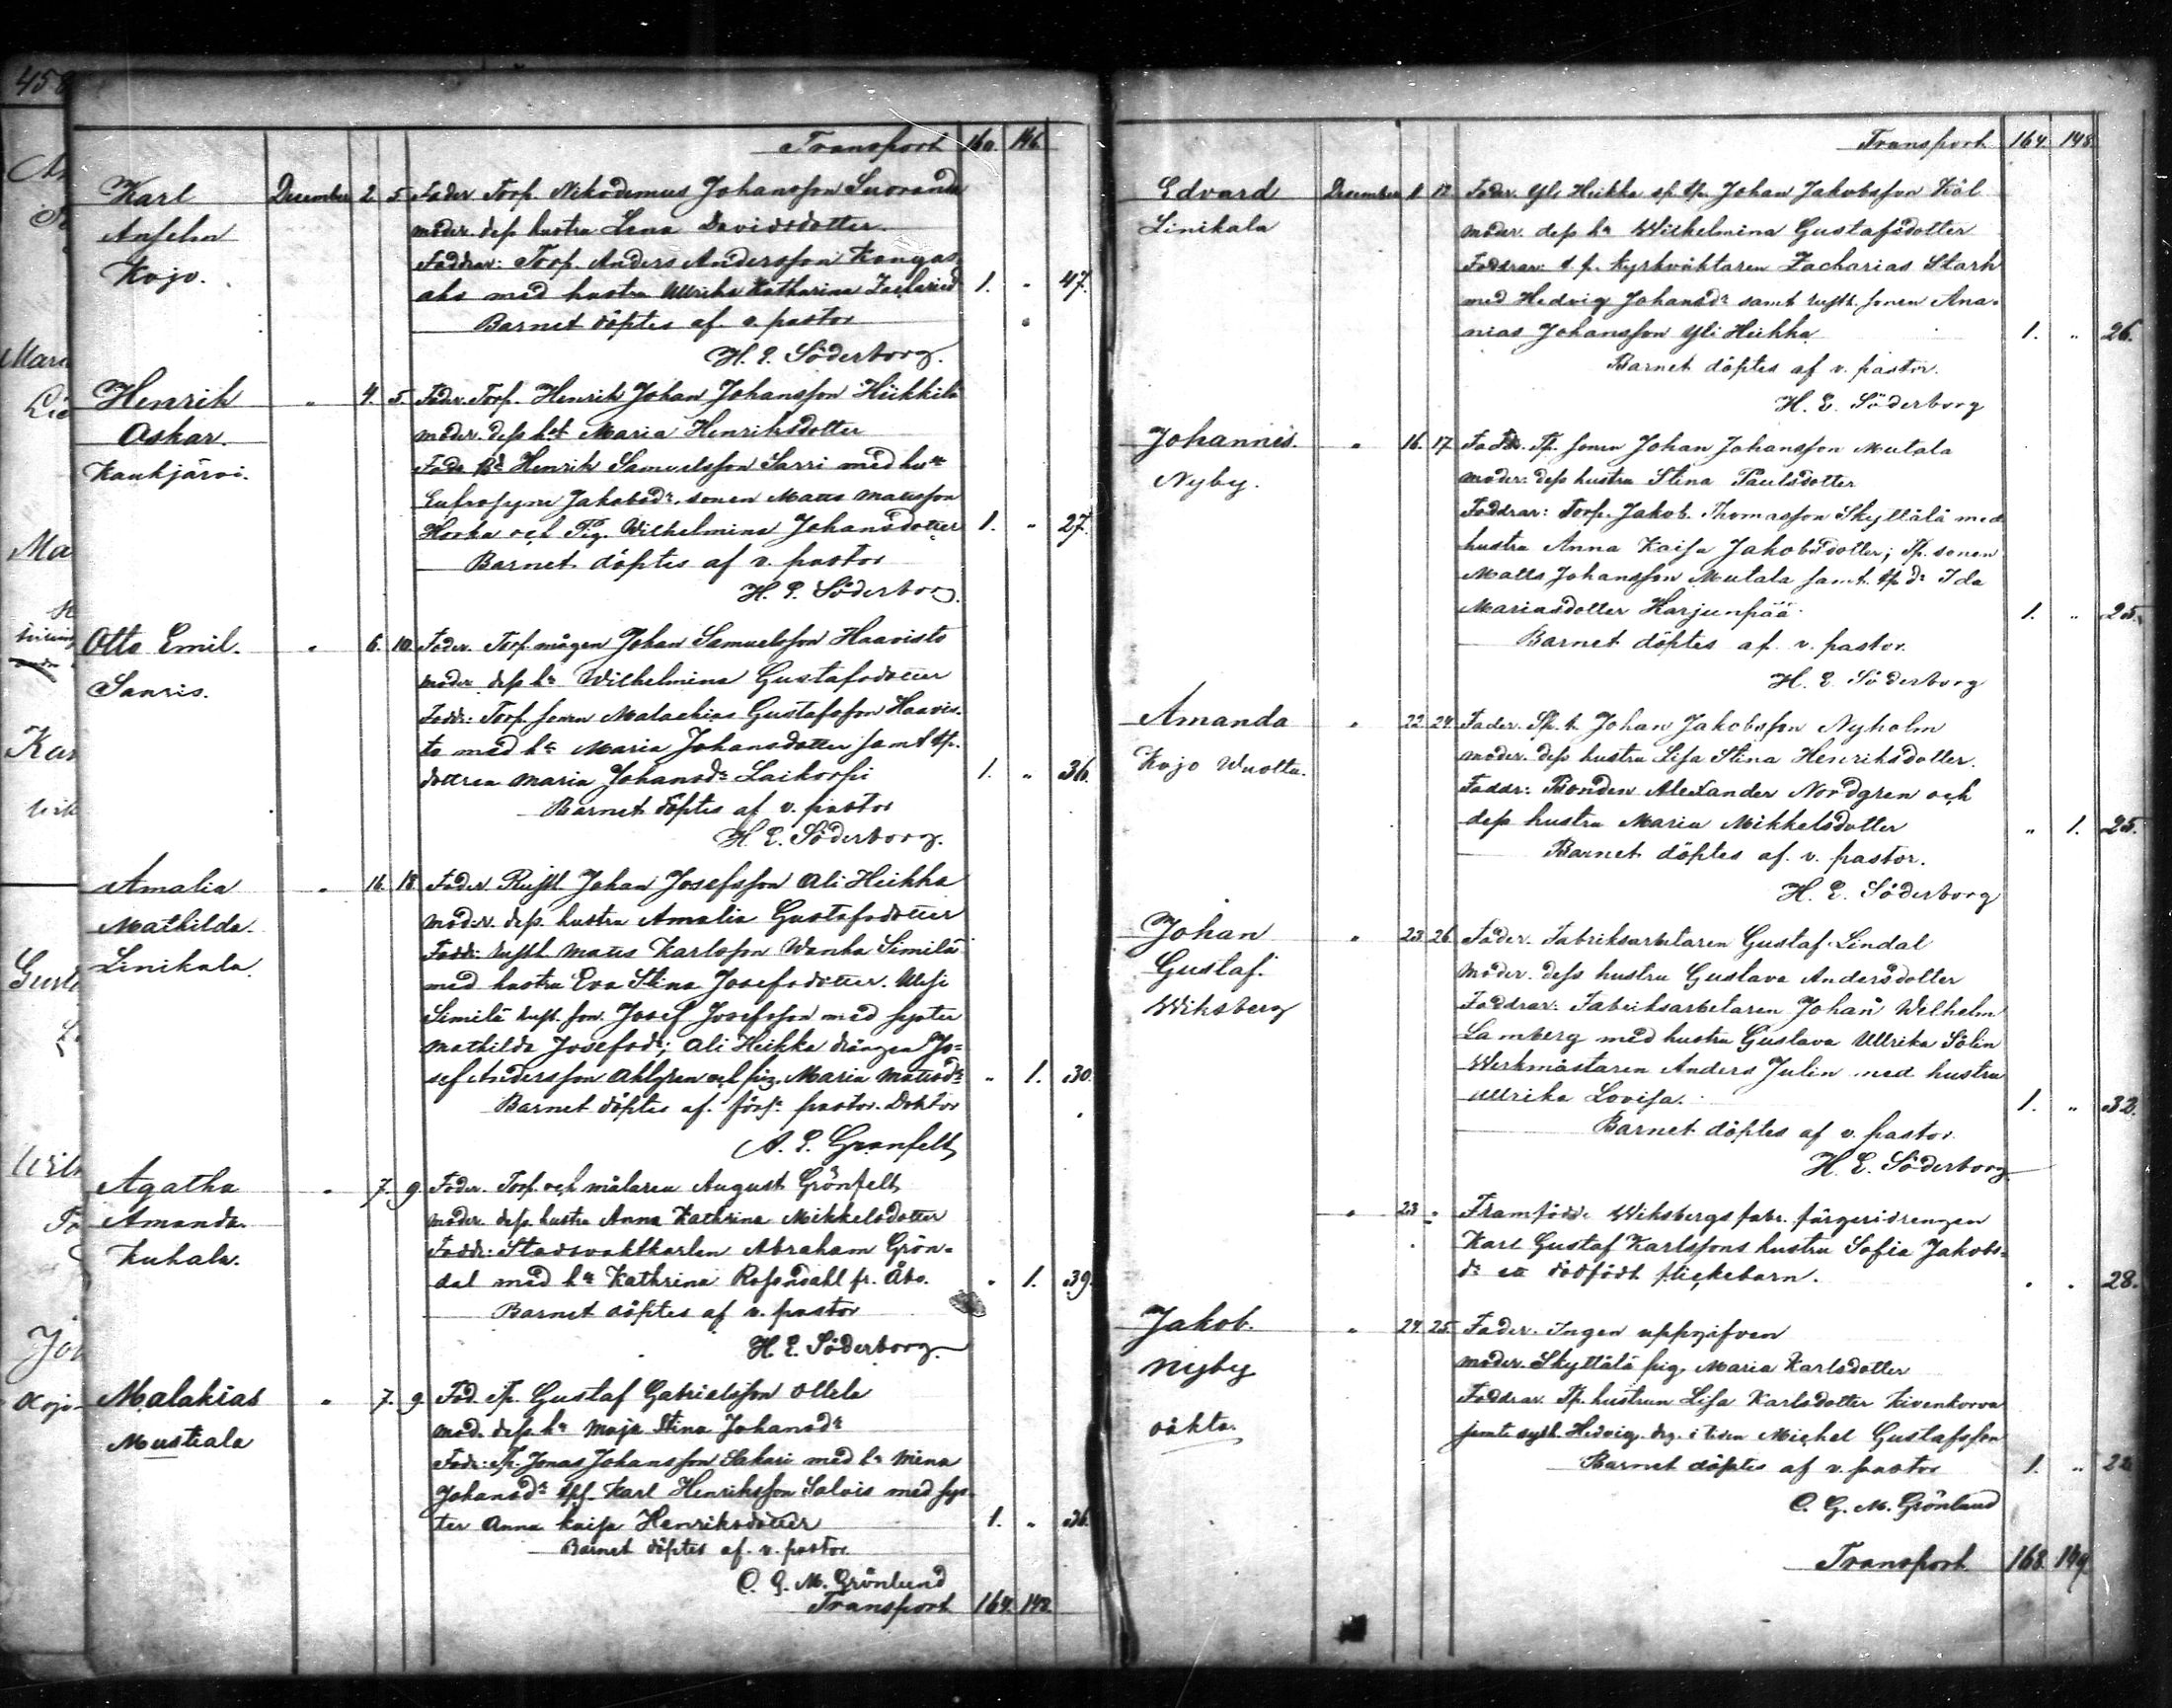 458
Transport 160. 146.
Karl December 2. 5. Fader. Torp. Nikodemus Johansson Suoranda
Anselm moder. dess hustru Lena Davidsdotter.
Kojo. Faddrar: Torp. Anders Andersson Kangas
aho med hustru Ullrika Katharina 1. " 47.
Barnet döptes af v. pastor
H. E. Söderborg.
Henrik " 4. 5. Fader. Torp. Henrik Johan Johansson Heikkilä
Oskar. moder. dess hust Maria Henriksdotter
Kaukjärvi. Henrik Samuelsson Sarri med
Eufrosyne Jakobsdr. sonen Matts Mattsson
Horka och Pig. Wilhelmina Johansdotter 1. " 27.
Barnet döptes af v. pastor
H. E. Söderborg.
Otto Emil. " 6. 10. Fader. Torp. mågen Johan Samuelsson Haavisto
Sanris. moder. dess hu Wilhelmina Gustafsdotter
Faddr: Torp. sonen Malachias Gustafsson Haavis-
to med hu Maria Johansdotter samt tp.
dottren Maria Johansdr Laikorpi 1. " 36.
Barnet döptes af v. pastor
H. E. Söderborg.
Amalia " 16. 18. Fader. Rusth. Johan Josefsson Ali Heikka
Mathilda. moder. dess. hustru Amalia Gustafsdotter
Linikala. Faddr: rusth. Matts Karlsson Wanha Similä
med hustru Eva Stina Josefsdotter. Uusi
Similä rust. son. Josef Josefsson med syster
Mathilda Josefsdr; Ali Heikka drängen Jo=
sef Andersson Ahlgren och pig. Maria Mattsdr " 1. 30.
Barnet döptes af. pastor. Doktor
A. E. Granfelt
Agatha " 7. 9. Fader. Torp. och målaren August Grönfelt
Amanda. moder. dess. hustru Anna Kathrina Mikkelsdotter
Kuhala. Faddr: Stadsvaktkarlen Abraham Grön-
dal med hu Kathrina Rosendahl fr. Åbo. " 1. 39.
Barnet döptes af v. pastor
H. E. Söderborg.
Malakias " 7. 9. Fad. Tp. Gustaf Gabrielsson Ollila
Mustiala mod. dess. hu Maja Stina Johansdr
Fadr: Tp. Jonas Johansson Sakari med hu Mina
Johansdr tps. Karl Henriksson Salois med sys-
ter Anna Kaisa Henriksdotter 1. " 36.
Barnet döptes af. v. pastor.
C. G. M. Grönlund
Transport 164. 148.
Transport 164. 148.
Edvard December 8 12 Fader. Yli Heikka Johan Jakobsson Köl
Linikala moder. dess hu Wilhelmina Gustafsdotter
Faddrar: f. Kyrkväktaren Zacharias Stark
med Hedvig Johansdr samt rusth. sonen Ana-
nias Johansson Yli Heikka 1. " 26.
Barnet döptes af v. pastor.
H. E. Söderborg
Johannes. " 16. 17. Fader. Tp. sonen Johan Johansson Mutala
Nyby. moder: dess hustru Stina Paulsdotter
Faddrar: Torp. Jakob. Thomasson Skyttälä med
hustru Anna Kaisa Jakobsdotter; Tp. sonen
Matts Johansson Mutala samt. tp dr Ida
Mariasdotter Harjunpää. 1. " 25.
Barnet döptes af v. pastor.
H. E. Söderborg
Amanda " 22. 24. Fader. Johan Jakobsson Nyholm
Kojo Wuolta. moder. dess hustru Lisa Stina Henriksdotter.
Faddr: Bonden Alexander Nordgren och
dess hustru Maria Mikkelsdotter " 1. 25.
Barnet döptes af. v. pastor.
H. E. Söderborg
Johan " 23. 26. Fader. Fabriksarbetaren Gustaf Lindal
Gustaf. Moder. dess hustru Gustava Andersdotter
Wiksberg Faddrar: Fabriksarbetaren Johan Wilhelm
Lamberg med hustru Gustava Ullrika Sölin
Werkmästaren Anders Julin med hustru
Ullrika Lovisa. 1. " 32.
Barnet döptes af v. pastor.
H. E. Söderborg
" 23 " Framfödde Wiksbergs fabr. färgeridrengen
Karl Gustaf Karlssons hustru Sofia Jakobs-
dr ett dödfödt flickebarn. " " 28.
Jakob. " 24. 25. Fader. Ingen uppgifven
Nyby moder. Skyttälä pig. Maria Karlsdotter
Faddrar Tp. hustrun Lisa Karlsdotter Kivenkorva
oäkta. jemte Hedvig. Michel Gustafsson
Barnet döptes af v. pastor 1. " 22
C. G. M. Grönlund
Transport. 168. 149.